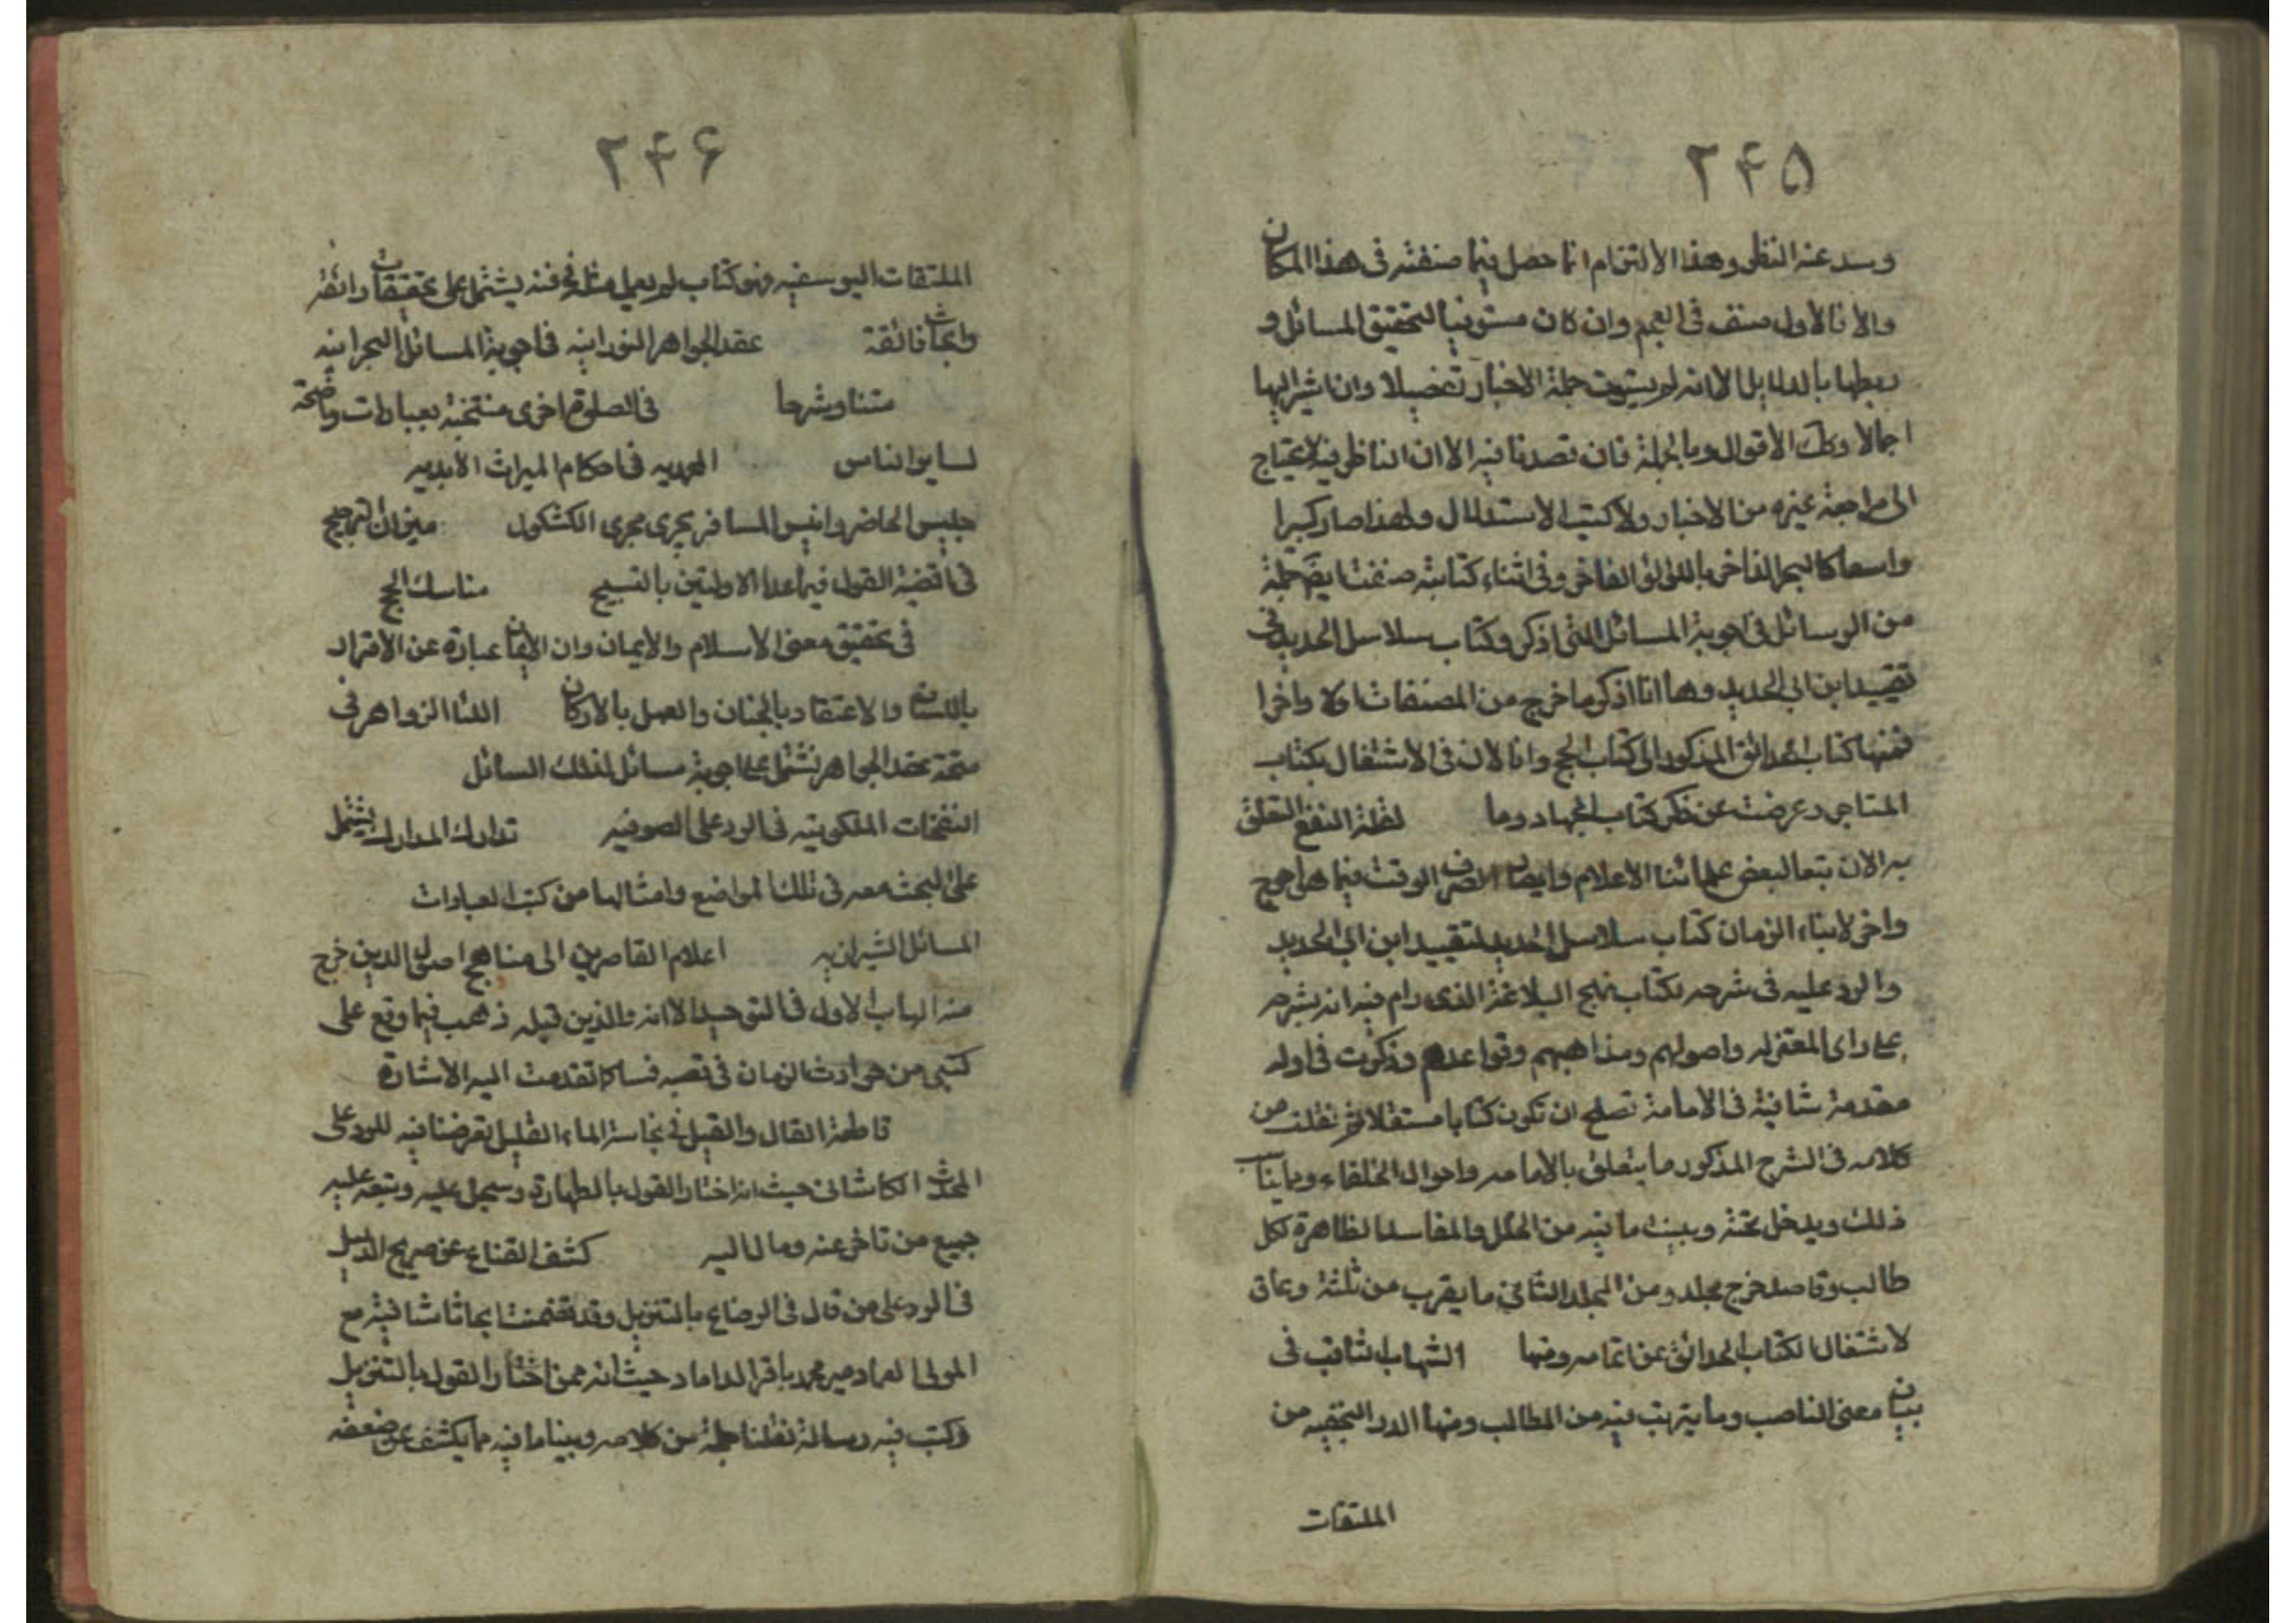 ٢۴۵
وسد عنه النظر وهذا الالتزام انما حصل فيما صنفته في هذا المكان
والا فالأول مصنف في العجم وان كان مستوفيا لتحقيق المسائل و
ربطها بالدلايل الا انه لم يستوف جملة الاخبار تفصيلا وان اشير اليها
اجمالا وكك الأقوال وبالجملة فان قصدنا فيه الا ان الناظر فيه لا يحتاج
الى مراجعة غيره من الاخبار ولا كتب الاستدلال ولهذا صار كبيرا
واسعا كالبحر الزاخر باللؤلؤ الفاخر وفي اثناء كتابته صنفت ايضا جملة
من الرسائل في اجوبة المسائل التي اذكر وكتاب سلاسل الحديد في
تقييد ابن ابي الحديد وها انا اذكر ما خرج من المصنفات اولا واخرا
فمنها كتاب الحدائق المذكور الى كتاب الحج وانا الان في الاشتغال بكتاب
المتاجر وعرضت عن ذكر كتاب الجهاد وما لقلة النفع المتعلق
به الان تبعا لبعض علمائنا الاعلام وايضا لصرف الوقت فيما هو احوج
واحرى لابناء الزمان كتاب سلاسل الحديد لتقييد ابن ابي الحديد
والرد عليه في شرحه لكتاب نهج البلاغة الذي رام فيه انه يشرحه
على راى المعتزله واصولهم ومذاهبهم وقواعدهم وذكرت في اوله
مقدمة شافية في الامامة تصلح ان تكون كتابا مستقلا ثم نقلت من
كلامه في الشرح المذكور ما يتعلق بالامامه واحوال الخلفاء وما يناسب
ذلك ويدخل تحته وبينت ما فيه من الخلل والمفاسد الظاهرة لكل
طالب وقاصد خرج مجلد ومن المجلد الثاني ما يقرب من ثلثة وعاق
الاشتغال لكتاب الحدائق عن اتمامه ومنها الشهاب الثاقب في
بيان معنى الناصب وما يترتب فيه من المطالب ومنها الدرر النجفيه من
الملتقات
٢۴۶
الملتقات اليوسفيه وهو كتاب لم يعمل مثله في فنه يشتمل على تحقيقات رائقة
وابحاث فائقة عقد الجواهر النورانيه في اجوبة المسائل البحرانيه
متنا وشرحا في الصلوة اخرى منتخبة بعبارات واضحة
لساير الناس المحمديه في احكام الميراث الأبديه
جليس الحاضر وانيس المسافر يجرى مجرى الكشكول ميزان الترجيح
في افضلية القول فيما عدا الاولتين بالتسبيح مناسك الحج
في تحقيق معنى الاسلام والايمان وان الايمان عبارة عن الاقرار
باللسان والاعتقاد بالجنان والعمل بالاركان اللئالى الزواهر في
تتمة عقد الجواهر تشتمل على اجوبة مسائل لذلك السائل
النفحات الملكوتيه في الرد على الصوفيه تدارك المدارك يشتمل
على البحث معه في تلك المواضع وامثالها من كتب العبادات
المسائل الشيرازيه اعلام القاصرين الى مناهج اصول الدين خرج
منه الباب الاول في التوحيد الا انه والذين قبله ذهب فيما وقع على
كتبي من حوادث الزمان في قصبه فسا كما تقدمت اليه الاشارة
قاطعة القال والقيل في نجاسة الماء القليل تعرضنا فيه للرد على
المحدث الكاشاني حيث انه اختار القول بالطهارة وسجل عليه وتبعه عليه
جميع من تاخر عنه ومال اليه كشف القناع عن صريح الدليل
في الرد على من قال في الرضاع بالتنزيل وقد تضمنت ابحاثا شافية مع
المولى العماد مير محمد باقر الداماد حيث انه ممن اختار القول بالتنزيل
وكتب فيه رسالة نقلنا جملة من كلامه وبينا ما فيه ما يكشف عن ضعفه